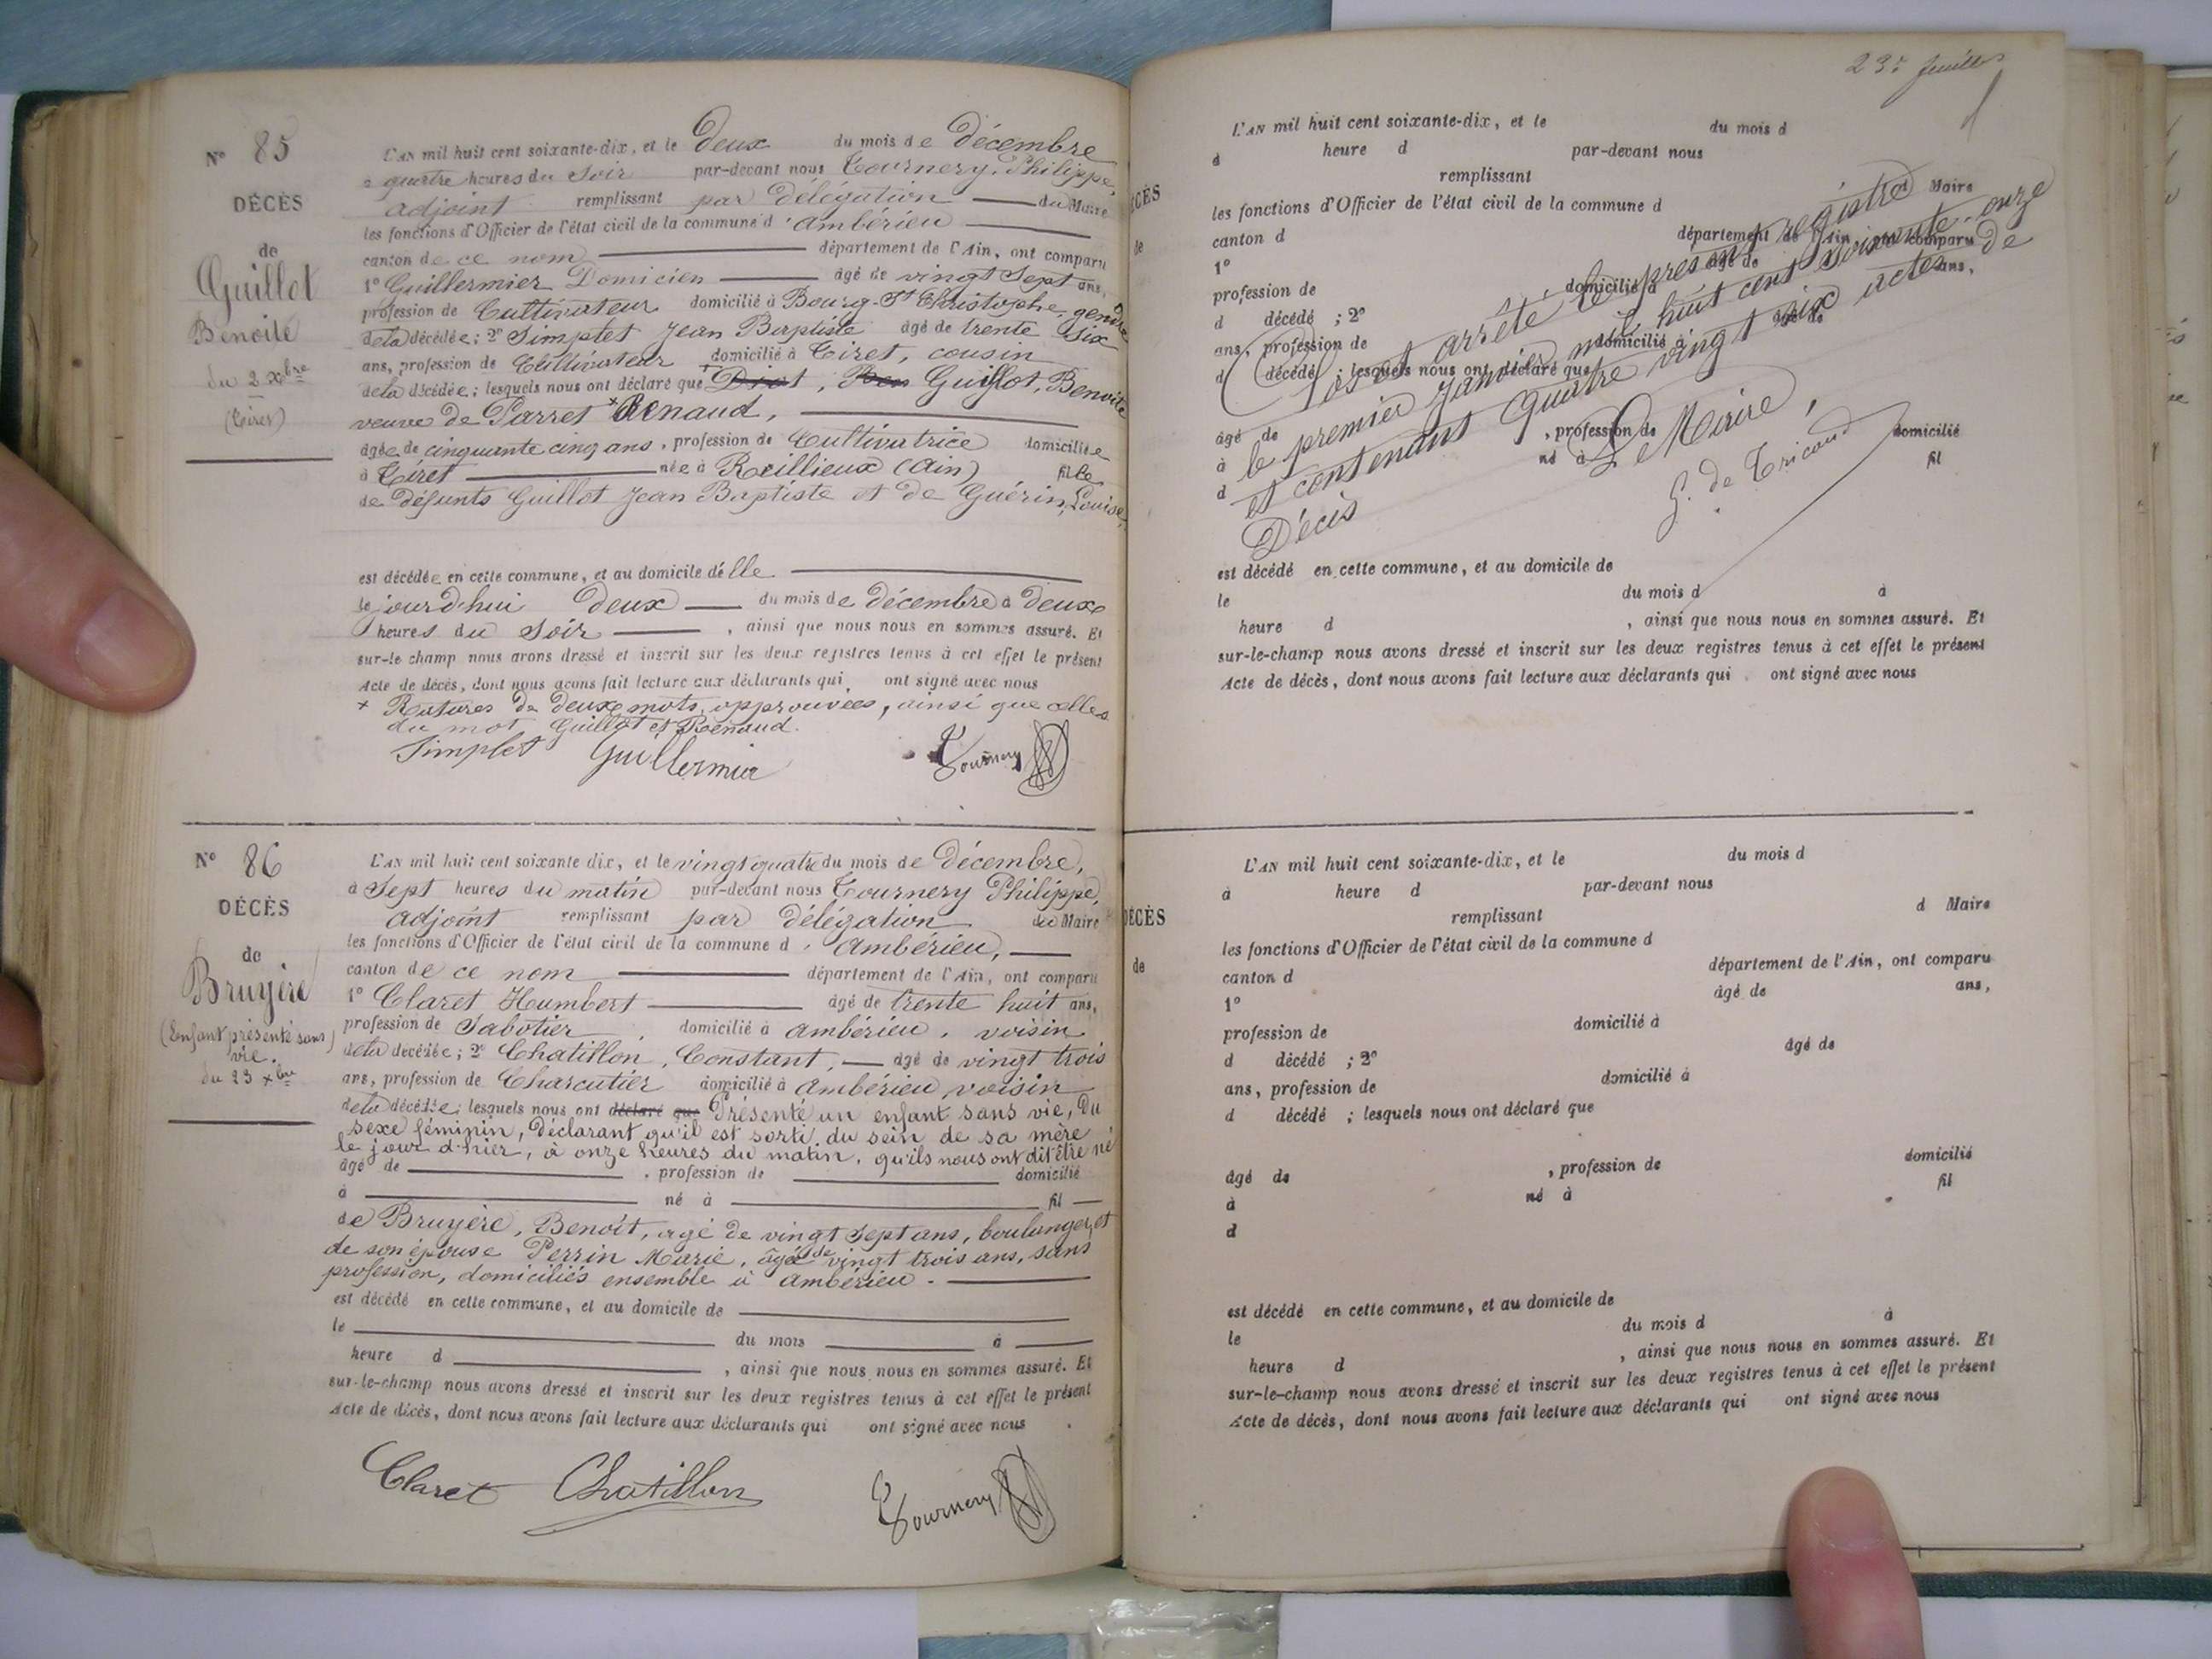 N° 85
DÉCÈS
de
Guillot
Benoite
du 2 xbre
(Tiret)
L'AN mil huit cent soixante-dix, et le deux du mois de Décembre
à quatre heures du Soir par-devant nous Tournery, Philippe,
adjoint remplissant par délégation du Maire
les fonctions d'Officier de l'état civil de la commune d'Ambérieu
canton de ce nom département de l'Ain, ont comparu
1° Guillermier Domicien âgé de vingt Sept ans,
profession de Cultivateur domicilié à Bourg-St Christophe, gendre
de la décédée ; 2° Simplet Jean Baptiste âgé de trente Six
ans, profession de Cultivateur domicilié à Tiret, cousin
de la décédée ; lesquels nous ont déclaré que Guillot, Benoite
veuve de Parret Renaud,
âgée de cinquante cinq ans, profession de Cultivatrice domiciliée
à Tiret née à Reillieux (Ain) fille
de défunts Guillot Jean Baptiste et de Guérin, Louise,
est décédée en cette commune, et au domicile d'elle
le jourd'hui deux du mois de décembre à deux
heures du Soir , ainsi que nous nous en sommes assuré. Et
sur-le champ nous avons dressé et inscrit sur les deux registres tenus à cet effet le présent
Acte de décès, dont nous avons fait lecture aux déclarants qui ont signé avec nous
+ Ratures de deux mots approuvées, ainsi que celles
du mot Guillot et Renaud.
Simplet Guillermier Tournery
N° 86
DÉCÈS
de
Bruyère
(Enfant présenté sans
vie.
du 23 xbre
L'AN mil huit cent soixante dix, et le vingt quatre du mois de Décembre,
à Sept heures du matin par-devant nous Tournery Philippe,
adjoint remplissant par délégation du Maire
les fonctions d'Officier de l'état civil de la commune d'Ambérieu,
canton de ce nom département de l'Ain, ont comparu
1° Claret Humbert âgé de trente huit ans,
profession de Sabotier domicilié à Ambérieu, voisin
de la décédée ; 2° Chatillon, Constant, âgé de vingt trois
ans, profession de Charcutier domicilié à Ambérieu, voisin
de la décédée ; lesquels nous ont déclaré que Présenté un enfant sans vie, du
sexe féminin, déclarant qu'il est sorti du sein de sa mère
le jour d'hier, à onze heures du matin, qu'ils nous ont dit être né
âgé de , profession de domicilié
à né à fil
de Bruyère, Benoît, agé de vingt Sept ans, boulanger, et
de son épouse Perrin Marie, âgée de vingt trois ans, sans
profession, domiciliés ensemble à Ambérieu.
est décédé en cette commune, et au domicile de
le du mois à
heure d , ainsi que nous nous en sommes assuré. Et
sur-le-champ nous avons dressé et inscrit sur les deux registres tenus à cet effet le présent
Acte de décès, dont nous avons fait lecture aux déclarants qui ont signé avec nous
Claret Chatillon Tournery
L'AN mil huit cent soixante-dix, et le du mois d
à heure d par-devant nous
remplissant d Maire
les fonctions d'Officier de l'état civil de la commune d
canton d département de l'Ain, ont comparu
1° âgé de ans,
profession de domicilié à
d décédé ; 2° âgé de
ans, profession de domicilié à
d décédé ; lesquels nous ont déclaré que
âgé de , profession de domicilié
à né à fil
d
Clos et arrêté le présent registre
le premier Janvier mil huit cent soixante-onze
et contenant Quatre vingt six actes de
Décès
Le Maire,
G. de Tricaud
est décédé en cette commune, et au domicile de
le du mois d à
heure d , ainsi que nous nous en sommes assuré. Et
sur-le-champ nous avons dressé et inscrit sur les deux registres tenus à cet effet le présent
Acte de décès, dont nous avons fait lecture aux déclarants qui ont signé avec nous
DÉCÈS
de
L'AN mil huit cent soixante-dix, et le du mois d
à heure d par-devant nous
remplissant d Maire
les fonctions d'Officier de l'état civil de la commune d
canton d département de l'Ain, ont comparu
1° âgé de ans,
profession de domicilié à
d décédé ; 2° âgé de
ans, profession de domicilié à
d décédé ; lesquels nous ont déclaré que
âgé de , profession de domicilié
à né à fil
d
est décédé en cette commune, et au domicile de
le du mois d à
heure d , ainsi que nous nous en sommes assuré. Et
sur-le-champ nous avons dressé et inscrit sur les deux registres tenus à cet effet le présent
Acte de décès, dont nous avons fait lecture aux déclarants qui ont signé avec nous